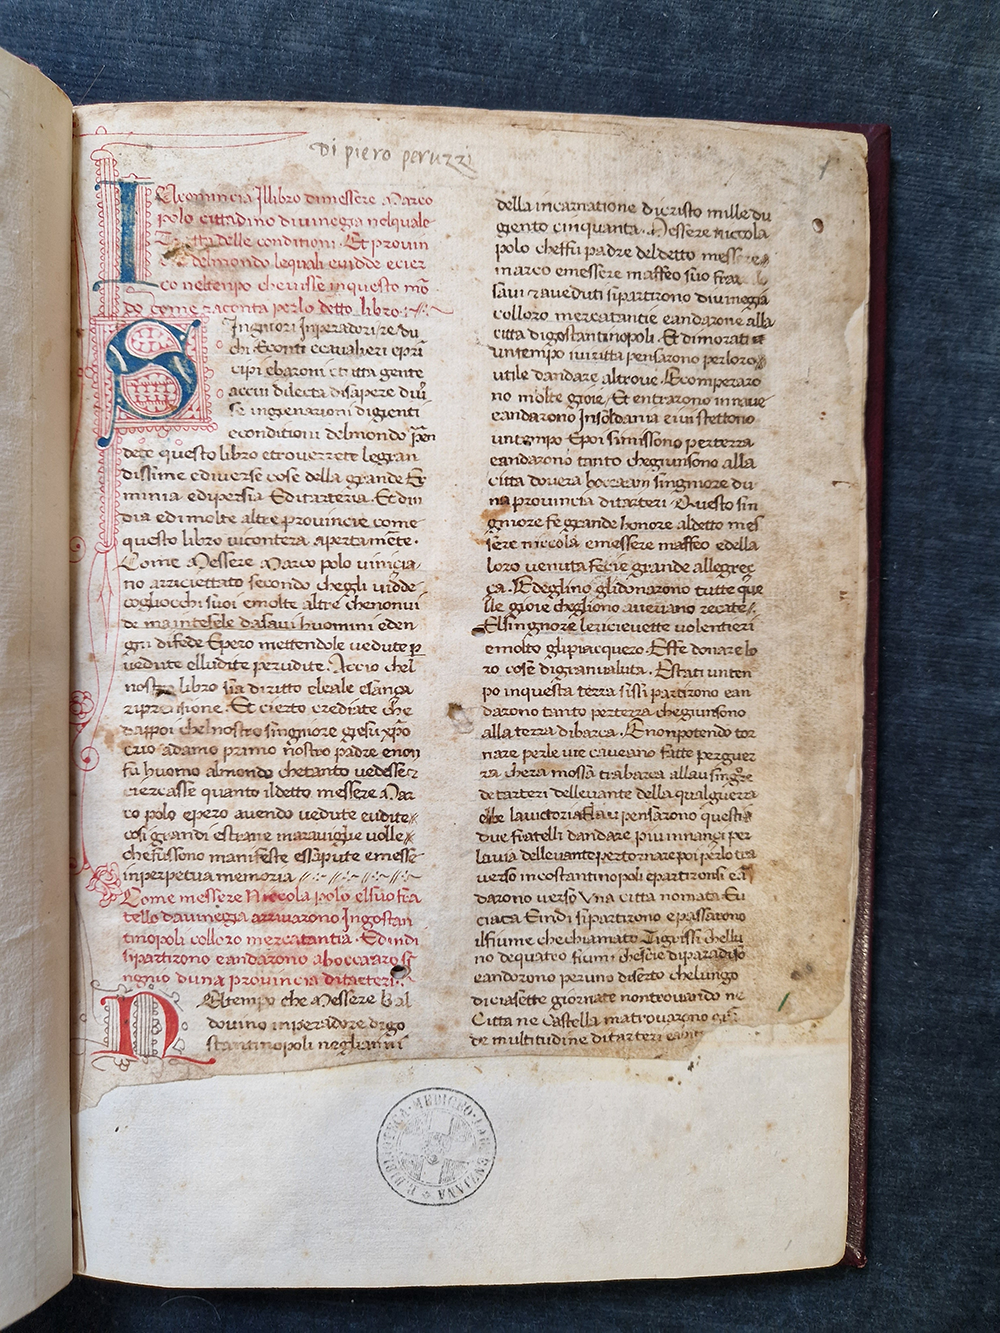 Di piero peruzzi
INcomincia Illibro dimessere Marco
polo cittadino diuinegia nelquale
Tratta delle conditioni. Et prouin
cie delmondo lequali euidde ecier
co neltenpo cheuisse inquesto mō
do come racconta perlo detto libro
SIngnori Inperadori re du
chi Econti ecaualieri eprī
cipi ebaroni etutta gente
acciu dilecta disapere diuer
se ingenerationi digienti
econditioni delmondo pren
dete questo libro etrouerrete legran
dissime ediuerse cose della grande Er
minia edipersia Editarteria. Et din
dia edimolte altre prouincie come
questo libro uicontera apertamēte.
Come Messere Marco polo uinicia
no arriciettato secondo chegli uidde
cogliocchi suoi emolte altre chenonui
de ma intesele dasaui huomini eden
gni difede Epero mettendole uedute p
uedute elludite perudite. Accio chel
nostro libro sia diritto eleale esanca
riprensione. Et cierto crediate che
dappoi chelnostro singniore giesu xpo
crio adamo primo nostro padre enon
fu huomo almondo chetanto uedesse o
ciercasse quanto ildetto messere Mar
co polo epero auendo uedute eudite
cosi grandi estrane marauiglie uolle
chefussono manifeste essapute emesse
inperpetua memoria
Come messere Niccola polo elsuo fra
tello dauinegia arriuarono Ingostan
tinopoli colloro mercatantia. Edindi
sipartirono eandarono aboccaro si
ngnio duna prouincia ditarteri
NEltempo che Messere bal
douino inperadore digo
stantinopoli neglianni
della incarnatione dicristo mille du
giento cinquanta. Messere niccola
polo cheffu padre deldetto messere
marco emessere maffeo suo
saui & aueduti sipartirono diuinegia
colloro mercatantie eandarone alla
citta digostantinopoli. Et dimorati
untempo iuiritta pensarono perloro
utile dandare altroue. Ecomperaro
no molte gioie. Et entrarono innaue
eandarono Insoldania eiui stettono
untempo Epoi simissono perterra
eandarono tanto chegiunsono alla
citta douera boccaun singniore du
na prouincia ditarteri. Questo sin
gniore fe grande honore aldetto mes
sere niccola emessere maffeo edella
loro uenuta fecie grande allegrec
ca. Edeglino glidonarono tutte que
lle gioie chegliono aueuano recate
Elsingniore lericieuette uolentieri
emolto glipiacquero. Effe donare lo
ro cose digranualuta. Estati unten
po inquesta terra sissi partirono ean
darono tanto perterra chegiunsono
alla terra dibarca. Enonpotendo tor
nare perle uie caueano fatte perguer
ra chera mossa trabarca allau singre
de tarteri delleuante della qualguerra
ebbe lauictoria pensarono questi
due fratelli dandare piuinnangi per
lauia delleuante pertornare poi perlo tra
uerso incostantinopoli epartironsi eā
darono uerso Una citta nomata Eu
ciaca Eindi sipartirono epassarono
ilfiume chechiamato Tigrissi chellu
no dequatro fiumi chescie diparadiso
eandorono peruno diserto chelungo
diciasette giornate nontrouando ne
Citta ne Castella matrouarono
de multitudine ditarteri
R. BIBLIOTECA MEDICEO LAURENZIANA